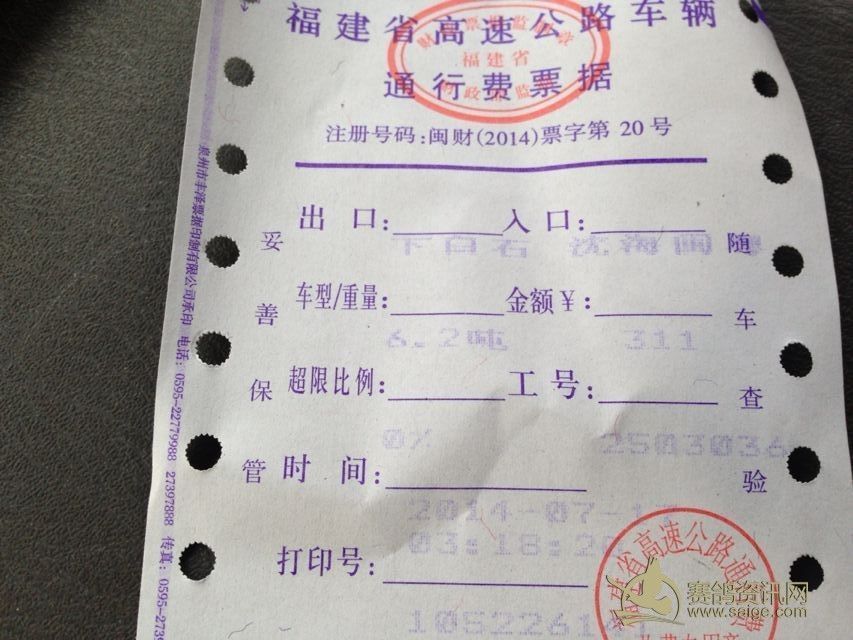 福建省高速公路车辆
通行费票据
福建省
注册号码:闽财(2014)票字第 20 号
出 口: 入 口:
下白石 沈海闽
车型/重量: 金额￥:
6.2吨 311
超限比例: 工 号:
0% 2503036
时 间:
2014-07-1
03:18:2
打印号:
1052261
妥善保管
随车查验
泉州市丰泽票据印刷有限公司承印 电话: 0595-22779988 27397888 传真: 0595-2739
福建省高速公路通
赛鸽资讯网
www.saige.com